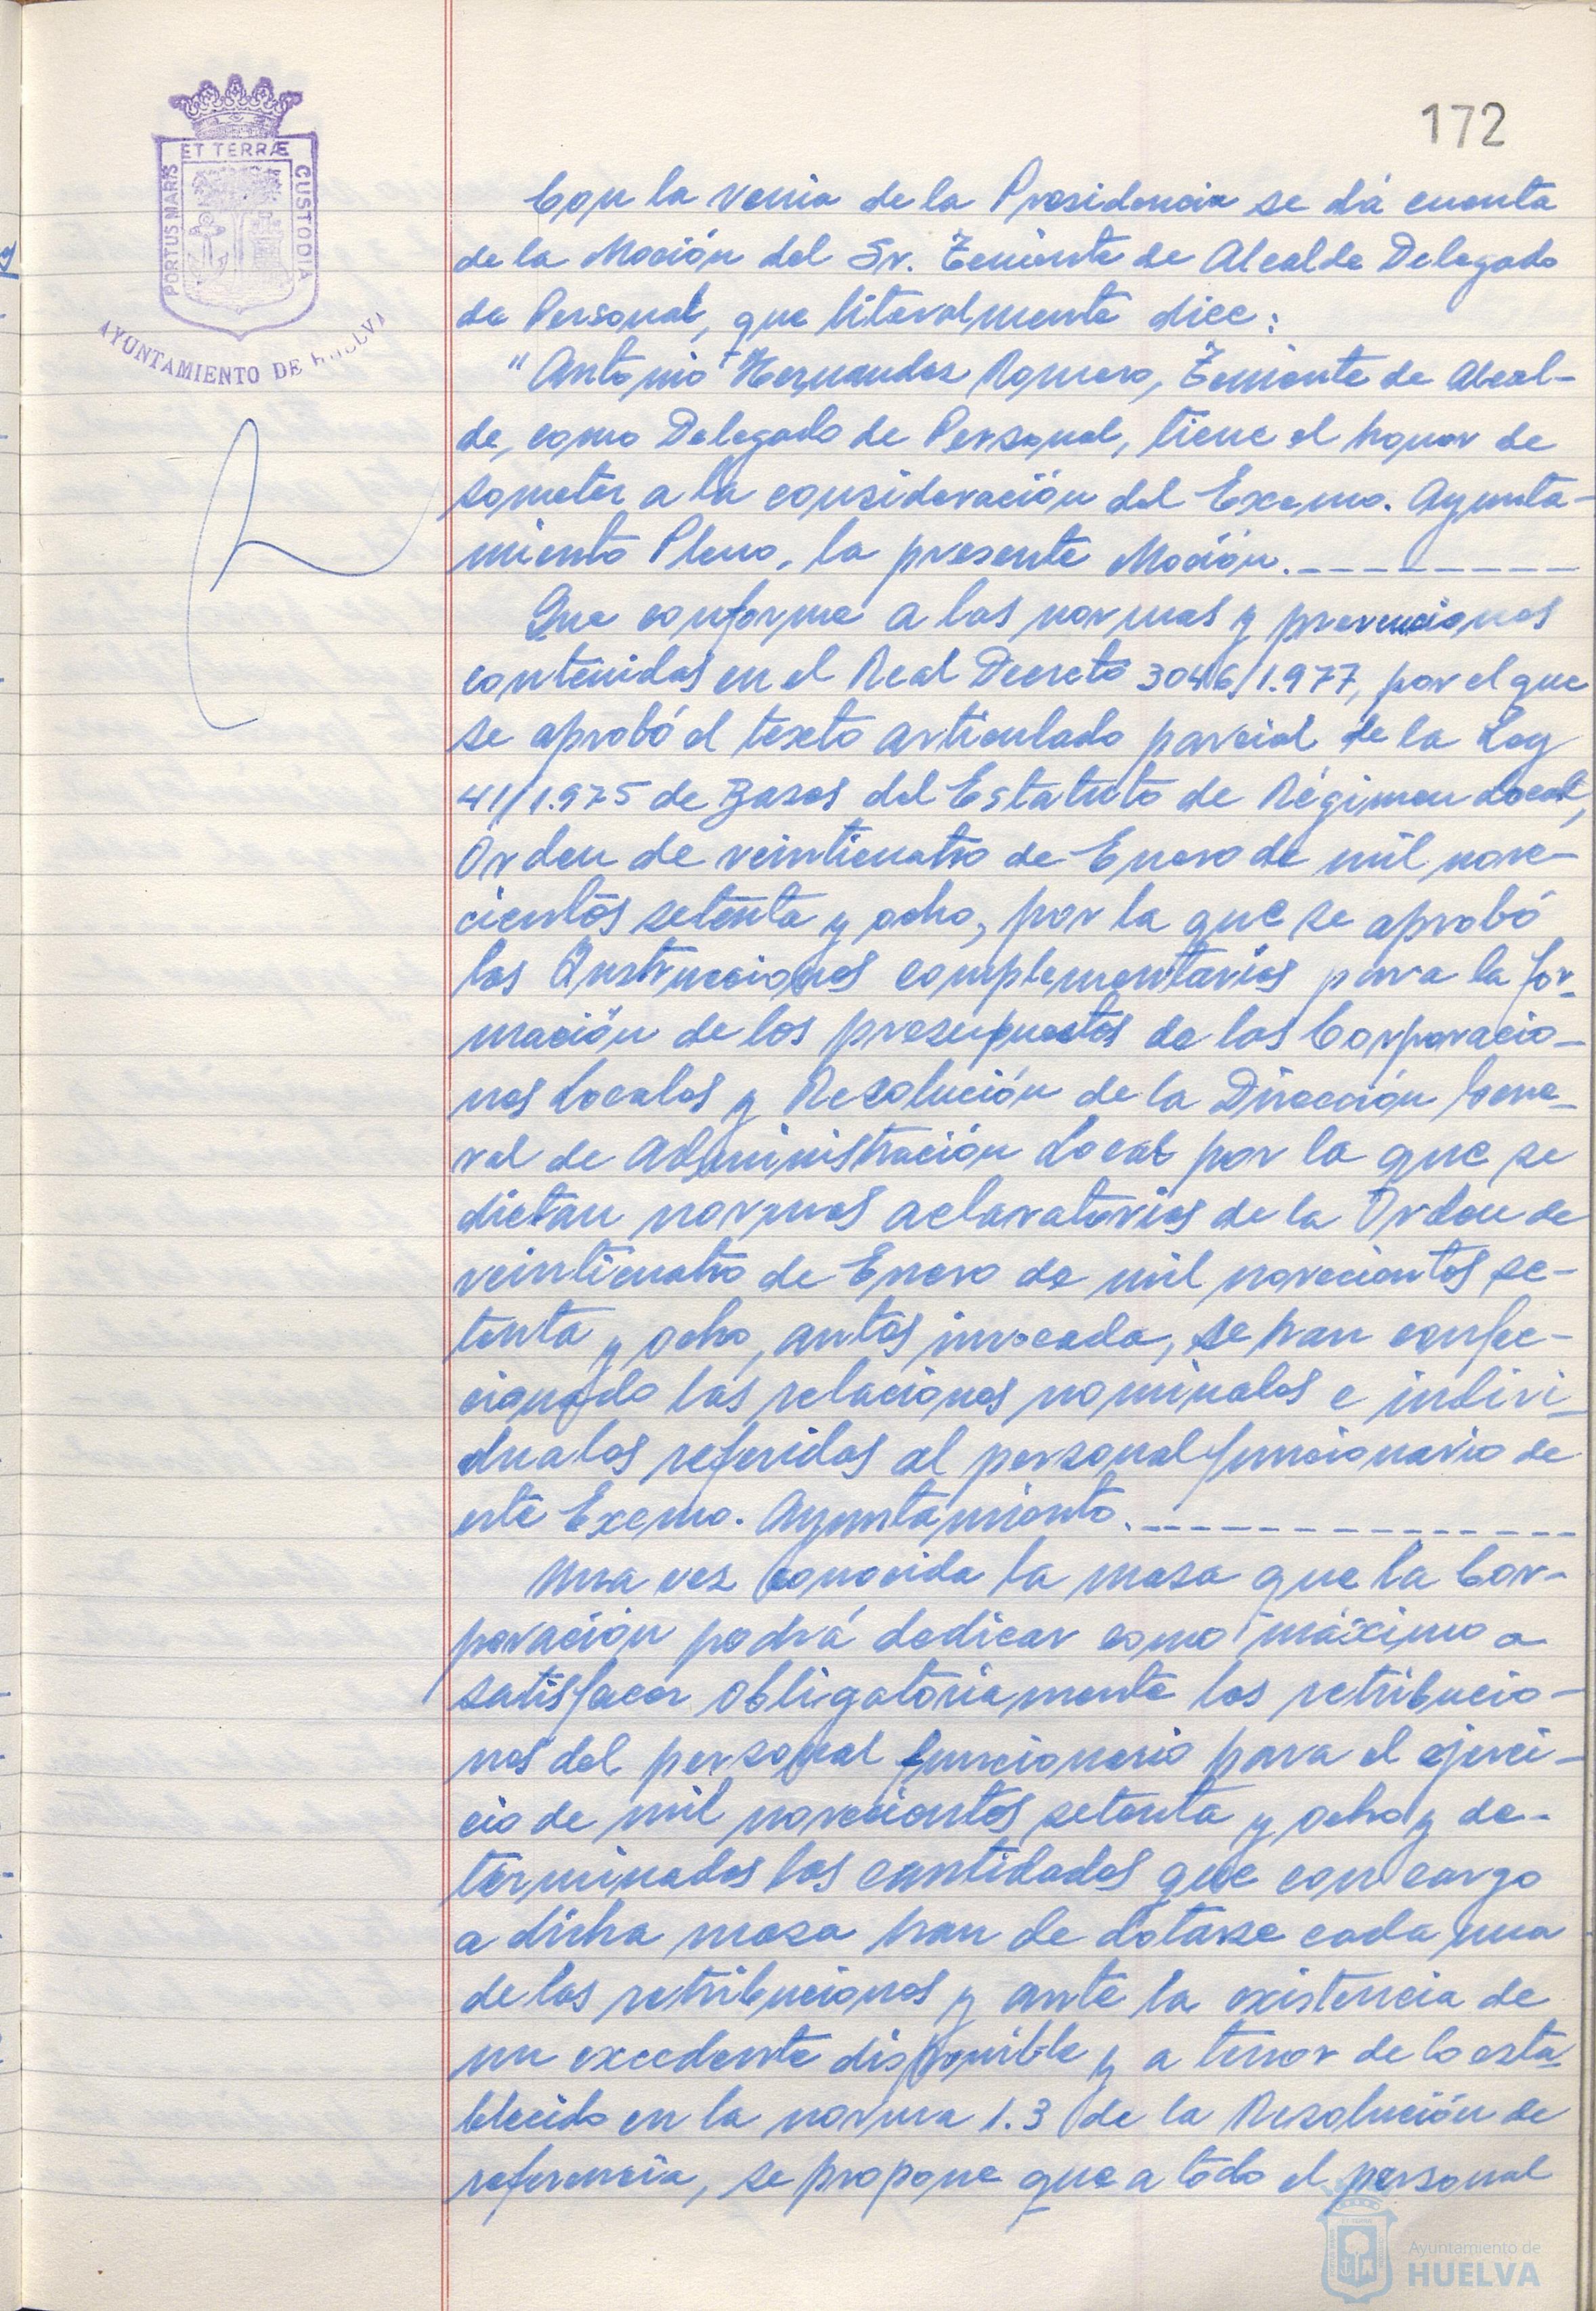 172
ET TERRÆ
PORTUS MARIS
CUSTODIA
AYUNTAMIENTO DE HUELVA
Con la venia de la Presidencia se dá cuenta
de la Moción del Sr. Teniente de Alcalde Delegado
de Personal, que literalmente dice:
"Antonio Hernandez Romero, Teniente de Alcal-
de, como Delegado de Personal, tiene el honor de
someter a la consideración del Excmo. Ayunta-
miento Pleno, la presente Moción.
Que conforme a las normas y prevenciones
contenidas en el Real Decreto 3046/1.977, por el que
se aprobó el texto articulado parcial de la Ley
41/1.975 de Bases del Estatuto de Régimen Local,
Orden de veinticuatro de Enero de mil nove-
cientos setenta y ocho, por la que se aprobó
las Instrucciones complementarias para la for-
mación de los presupuestos de las Corporacio-
nes Locales y Resolución de la Dirección Gene-
ral de Administración Local por la que se
dictan normas aclaratorias de la Orden de
veinticuatro de Enero de mil novecientos se-
tenta y ocho, antes invocada, se han confec-
cionado las relaciones nominales e indivi-
duales referidas al personal funcionario de
este Excmo. Ayuntamiento.
Una vez conocida la masa que la Cor-
poración podrá dedicar como máximo a
satisfacer obligatoriamente las retribucio-
nes del personal funcionario para el ejerci-
cio de mil novecientos setenta y ocho y de-
terminadas las cantidades que con cargo
a dicha masa han de dotarse cada una
de las retribuciones y ante la existencia de
un excedente disponible y a tenor de lo esta-
blecido en la norma 1.3 de la Resolución de
referencia, se propone que a todo el personal
Ayuntamiento de
HUELVA